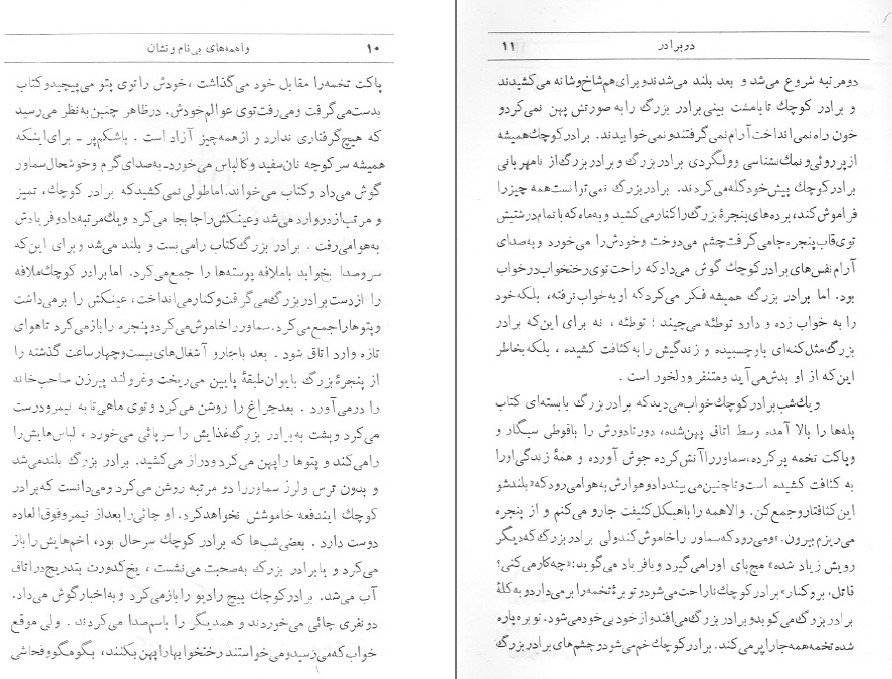 ۱۰ واهمه‌های بی‌نام و نشان
پاکت تخمه را مقابل خود می‌گذاشت ، خودش را توی پتو می‌پیچید و کتاب
بدست می‌گرفت و می‌رفت توی عوالم خودش. در ظاهر چنین به نظر می‌رسید
که هیچ گرفتاری ندارد و از همه چیز آزاد است . با شکم پر ـ برای اینکه
همیشه سر کوچه نان سفید و کالباس می‌خورد ـ به صدای گرم و خوشحال سماور
گوش می‌داد و کتاب می‌خواند. اما طولی نمی‌کشید که برادر کوچک، تمیز
و مرتب از در وارد می‌شد و عینکش را جابجا می‌کرد و یک مرتبه داد و فریادش
به هوا می‌رفت . برادر بزرگ کتاب را می‌بست و بلند می‌شد و برای این که
سر و صدا بخوابد با ملافه پوسته‌ها را جمع می‌کرد. اما برادر کوچک ملافه
را از دست برادر بزرگ می‌گرفت و کنار می‌انداخت، عینکش را بر می‌داشت
و پتوها را جمع می‌کرد. سماور را خاموش می‌کرد و پنجره را باز می‌کرد تا هوای
تازه وارد اتاق شود . بعد با جارو آشغال‌های بیست و چهار ساعت گذشته را
از پنجرهٔ بزرگ با یوان طبقهٔ پایین می‌ریخت و غرولند پیرزن صاحب خانه
را در می‌آورد . بعد چراغ را روشن می‌کرد و توی ماهی تابه نیمرو درست
می‌کرد و پشت به برادر بزرگ غذایش را سر پائی می‌خورد ، لباس‌هایش را
را می‌کند و پتوها را پهن می‌کرد و دراز می‌کشید. برادر بزرگ بلند می‌شد
و بدون ترس و لرز سماور را دو مرتبه روشن می‌کرد و می‌دانست که برادر
کوچک ایندفعه خاموشش نخواهد کرد. او چائی را بعد از نیمرو فوق العاده
دوست دارد . بعضی شب‌ها که برادر کوچک سرحال بود، اخم‌هایش را باز
می‌کرد و با برادر بزرگ به صحبت می‌نشست ، یخ کدورت بتدریج در اتاق
آب می‌شد. برادر کوچک پیچ رادیو را باز می‌کرد و به اخبار گوش می‌داد.
دو نفری چائی می‌خوردند و همدیگر را باسم صدا می‌کردند . ولی موقع
خواب که می‌رسید و می‌خواستند رختخوابها را پهن بکنند، بگومگو و فحاشی
دو برادر ۱۱
دو مرتبه شروع می‌شد و بعد بلند می‌شدند و برای هم شاخ و شانه می‌کشیدند
و برادر کوچک تا با مشت بینی برادر بزرگ را به صورتش پهن نمی‌کرد و
خون راه نمی‌انداخت آرام نمی‌گرفتند و نمی‌خوابیدند. برادر کوچک همیشه
از پر روئی و نمک نشناسی و ولگردی برادر بزرگ و برادر بزرگ از نامهربانی
برادر کوچک پیش خود گله می‌کردند. برادر بزرگ نمی‌توانست همه چیز را
فراموش کند، پرده‌های پنجرهٔ بزرگ را کنار می‌کشید و به ماه که با تمام درشتیش
توی قاب پنجره جا می‌گرفت چشم می‌دوخت و خودش را می‌خورد و به صدای
آرام نفس‌های برادر کوچک گوش می‌داد که راحت توی رختخواب در خواب
بود. اما برادر بزرگ همیشه فکر می‌کرد که او به خواب نرفته، بلکه خود
را به خواب زده و دارد توطئه می‌چیند ؛ توطئه ، نه برای این که برادر
بزرگ مثل کنه‌ای باو چسبیده و زندگیش را به کثافت کشیده ، بلکه بخاطر
این که از او بدش می‌آید و متنفر و دلخور است .
و یک شب برادر کوچک خواب می‌دید که برادر بزرگ با بسته‌ای کتاب
پله‌ها را بالا آمده وسط اتاق پهن شده، دور تا دورش را با قوطی سیگار و
و پاکت تخمه پر کرده، سماور را آتش کرده جوش آورده و همهٔ زندگی او را
به کثافت کشیده است و تا چنین می‌بیند داد و هوارش به هوا می‌رود که «بلند شو
این کثافتار و جمع کن. والا همه را با هیکل کثیفت جارو می‌کنم و از پنجره
می‌ریزم بیرون.» و می‌رود که سماور را خاموش کند ولی برادر بزرگ که دیگر
رویش زیاد شده، مچ پای او را می‌گیرد و با فریاد می‌گوید: «چه کار می‌کنی؟
قاتل، برو کنار» برادر کوچک ناراحت می‌شود و توبرهٔ تخمه را بر می‌دارد و به کلهٔ
برادر بزرگ می‌کوبد و برادر بزرگ می‌افتد و از خود بی خود می‌شود. توبره پاره
شده تخمه همه جا را پر می‌کند. برادر کوچک خم می‌شود و چشم‌های برادر بزرگ